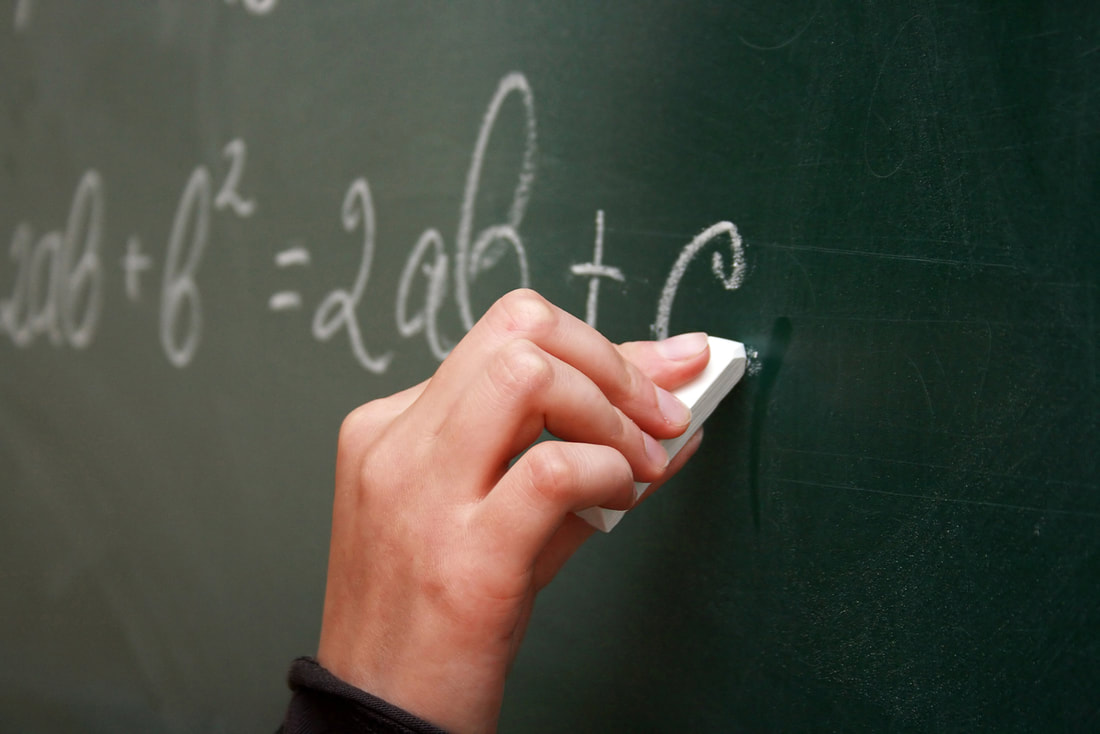 2ab + b² = 2ab + c